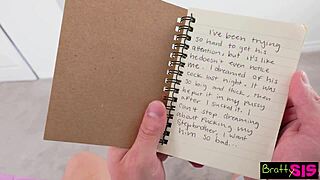 I've been trying
so hard to get his
attention, but it's like
he doesn't even notice
me. I dreamed of his
cock last night. It was
so big and thick. Then
he put it in my pussy
after I sucked it. I
can't stop dreaming
about fucking my
stepbrother. I want
him so bad...
BrattySIS